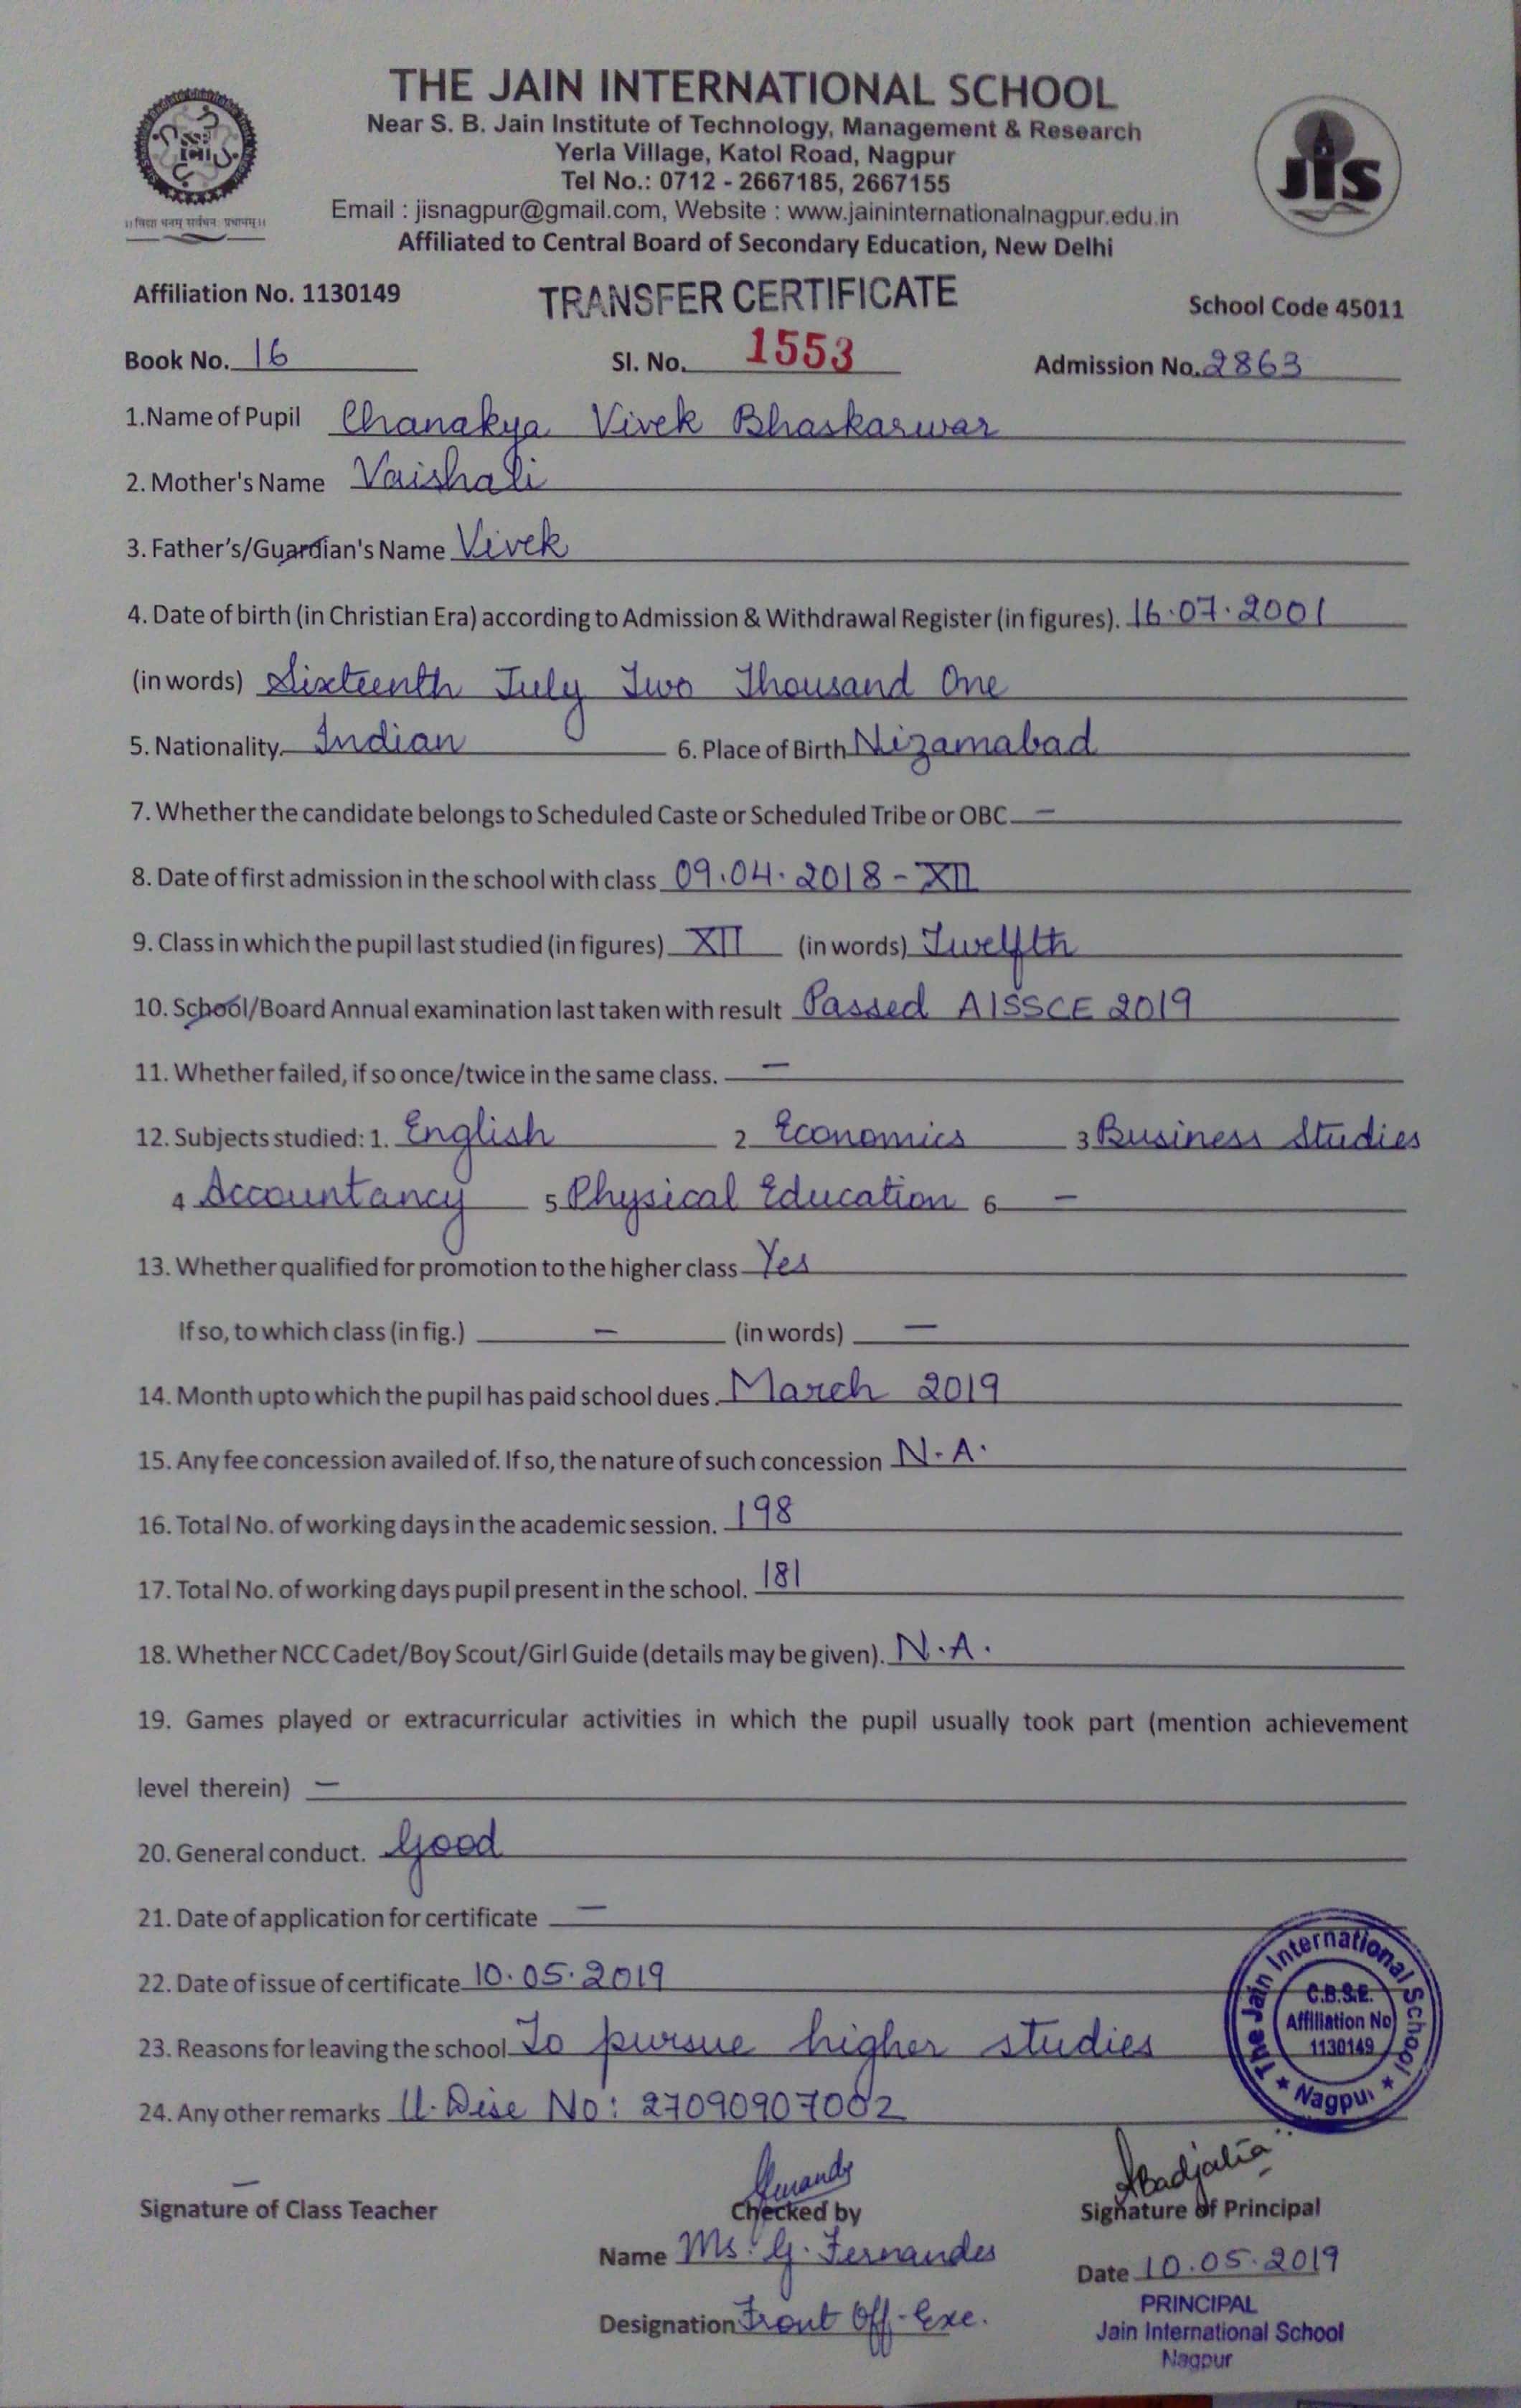 THE JAIN INTERNATIONAL SCHOOL
Near S. B. Jain Institute of Technology, Management & Research
Yerla Village, Katol Road, Nagpur
Tel No.: 0712 - 2667185, 2667155
Email : jisnagpur@gmail.com, Website : www.jaininternationalnagpur.edu.in
Affiliated to Central Board of Secondary Education, New Delhi
JIS
Affiliation No. 1130149 TRANSFER CERTIFICATE School Code 45011
Book No. 16 Sl. No. 1553 Admission No. 2863
1.Name of Pupil Chanakya Vivek Bhaskarwar
2. Mother's Name Vaishali
3. Father's/Guardian's Name Vivek
4. Date of birth (in Christian Era) according to Admission & Withdrawal Register (in figures). 16.07.2001
(in words) Sixteenth July Two Thousand One
5. Nationality. Indian 6. Place of Birth Nizamabad
7. Whether the candidate belongs to Scheduled Caste or Scheduled Tribe or OBC. —
8. Date of first admission in the school with class 09.04.2018 - XII
9. Class in which the pupil last studied (in figures) XII (in words) Twelfth
10. School/Board Annual examination last taken with result Passed AISSCE 2019
11. Whether failed, if so once/twice in the same class. —
12. Subjects studied: 1. English 2 Economics 3 Business Studies
4 Accountancy 5 Physical Education 6 —
13. Whether qualified for promotion to the higher class Yes
If so, to which class (in fig.) — (in words) —
14. Month upto which the pupil has paid school dues. March 2019
15. Any fee concession availed of. If so, the nature of such concession N.A.
16. Total No. of working days in the academic session. 198
17. Total No. of working days pupil present in the school. 181
18. Whether NCC Cadet/Boy Scout/Girl Guide (details may be given). N.A.
19. Games played or extracurricular activities in which the pupil usually took part (mention achievement
level therein) —
20. General conduct. Good
21. Date of application for certificate —
22. Date of issue of certificate 10.05.2019
23. Reasons for leaving the school To pursue higher studies
24. Any other remarks U. Dise No: 27090907002
The Jain International School
C.B.S.E.
Affiliation No
1130149
★ Nagpur ★
—
Signature of Class Teacher Checked by Signature of Principal
Name Ms. G. Fernandes Date 10.05.2019
Designation Front Off. Exe.
PRINCIPAL
Jain International School
Nagpur